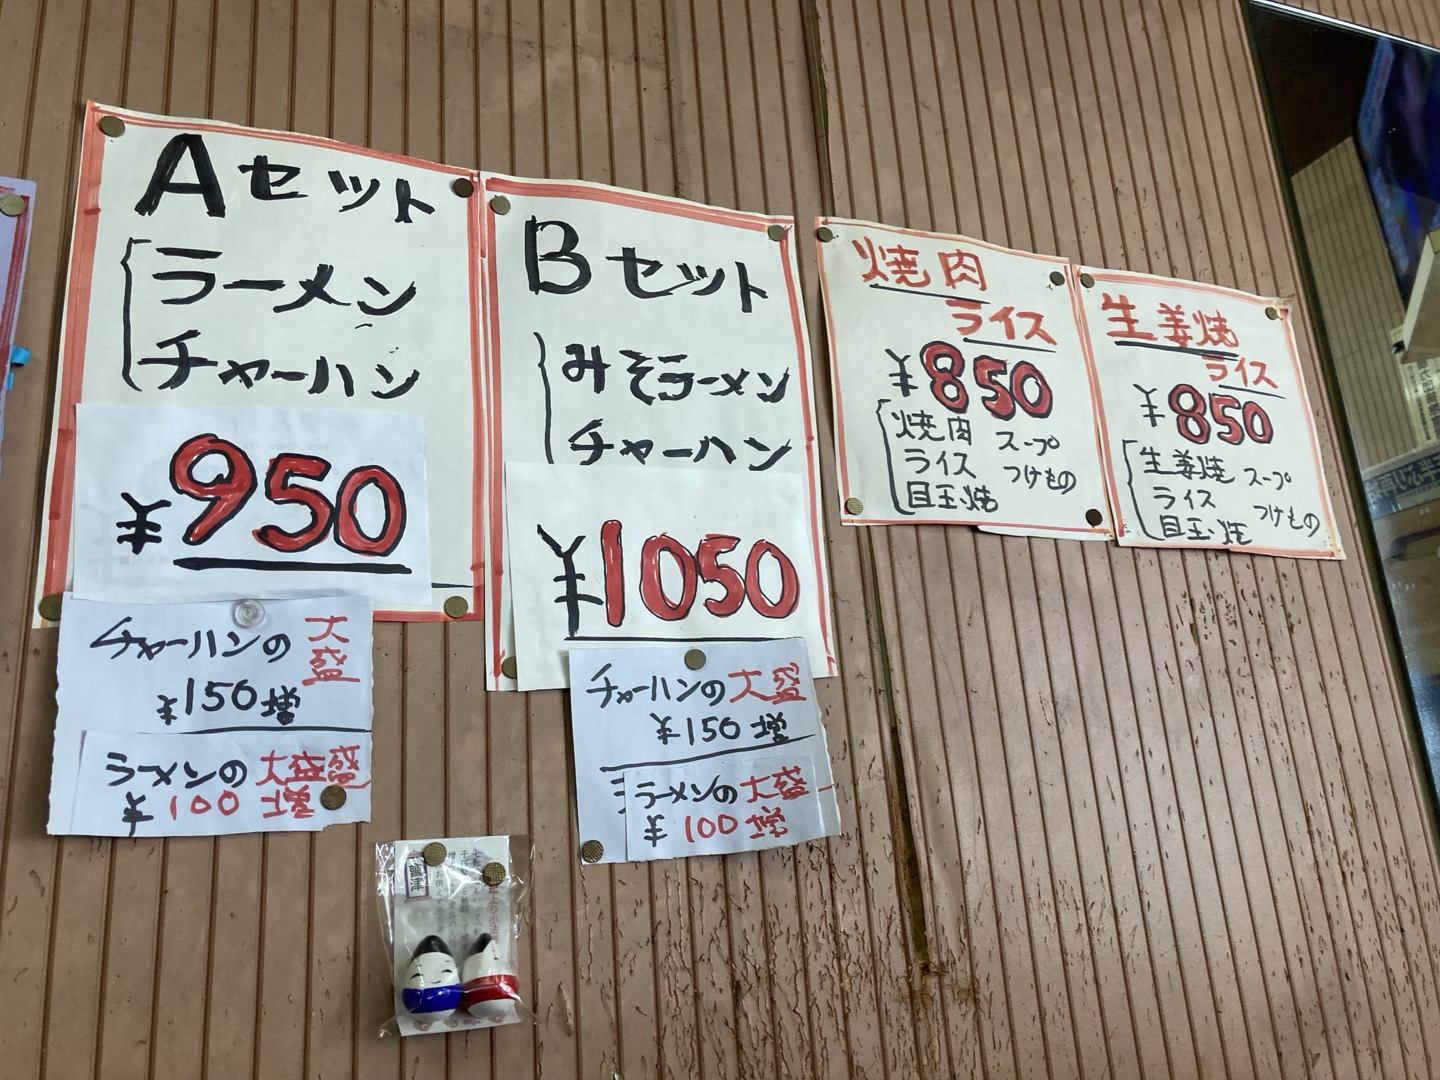 Aセット
ラーメン
チャーハン
¥950
チャーハンの大盛
¥150増
ラーメンの大盛盛
¥100増
Bセット
みそラーメン
チャーハン
¥1050
チャーハンの大盛
¥150増
ラーメンの大盛
¥100増
焼肉
ライス
¥850
焼肉 スープ
ライス つけもの
目玉焼
生姜焼
ライス
¥850
生姜焼 スープ
ライス つけもの
目玉焼
會津